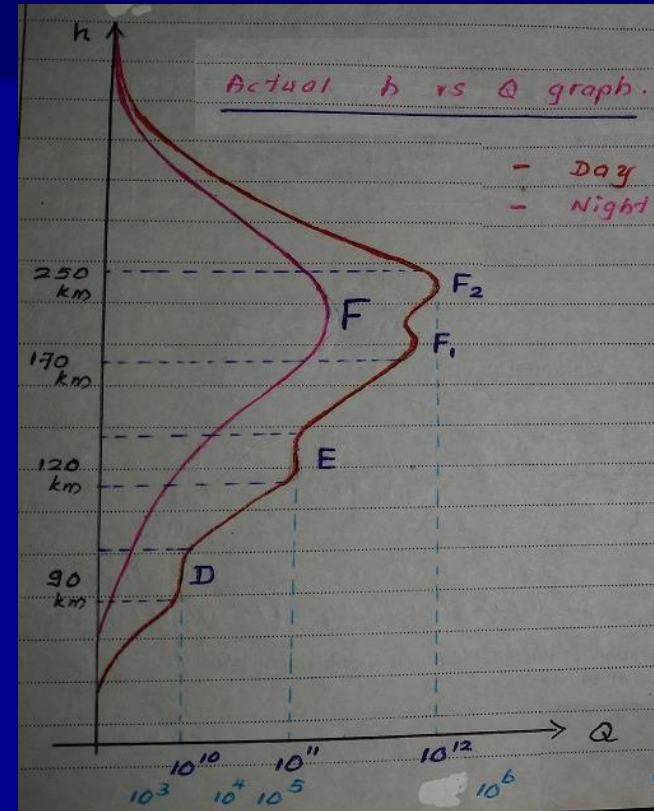 h
Actual h vs Q graph.
- Day
- Night
250
km
F₂
F
F₁
170
km
E
120
km
D
90
km
Q
10¹⁰ 10¹¹ 10¹²
10³ 10⁴ 10⁵ 10⁶